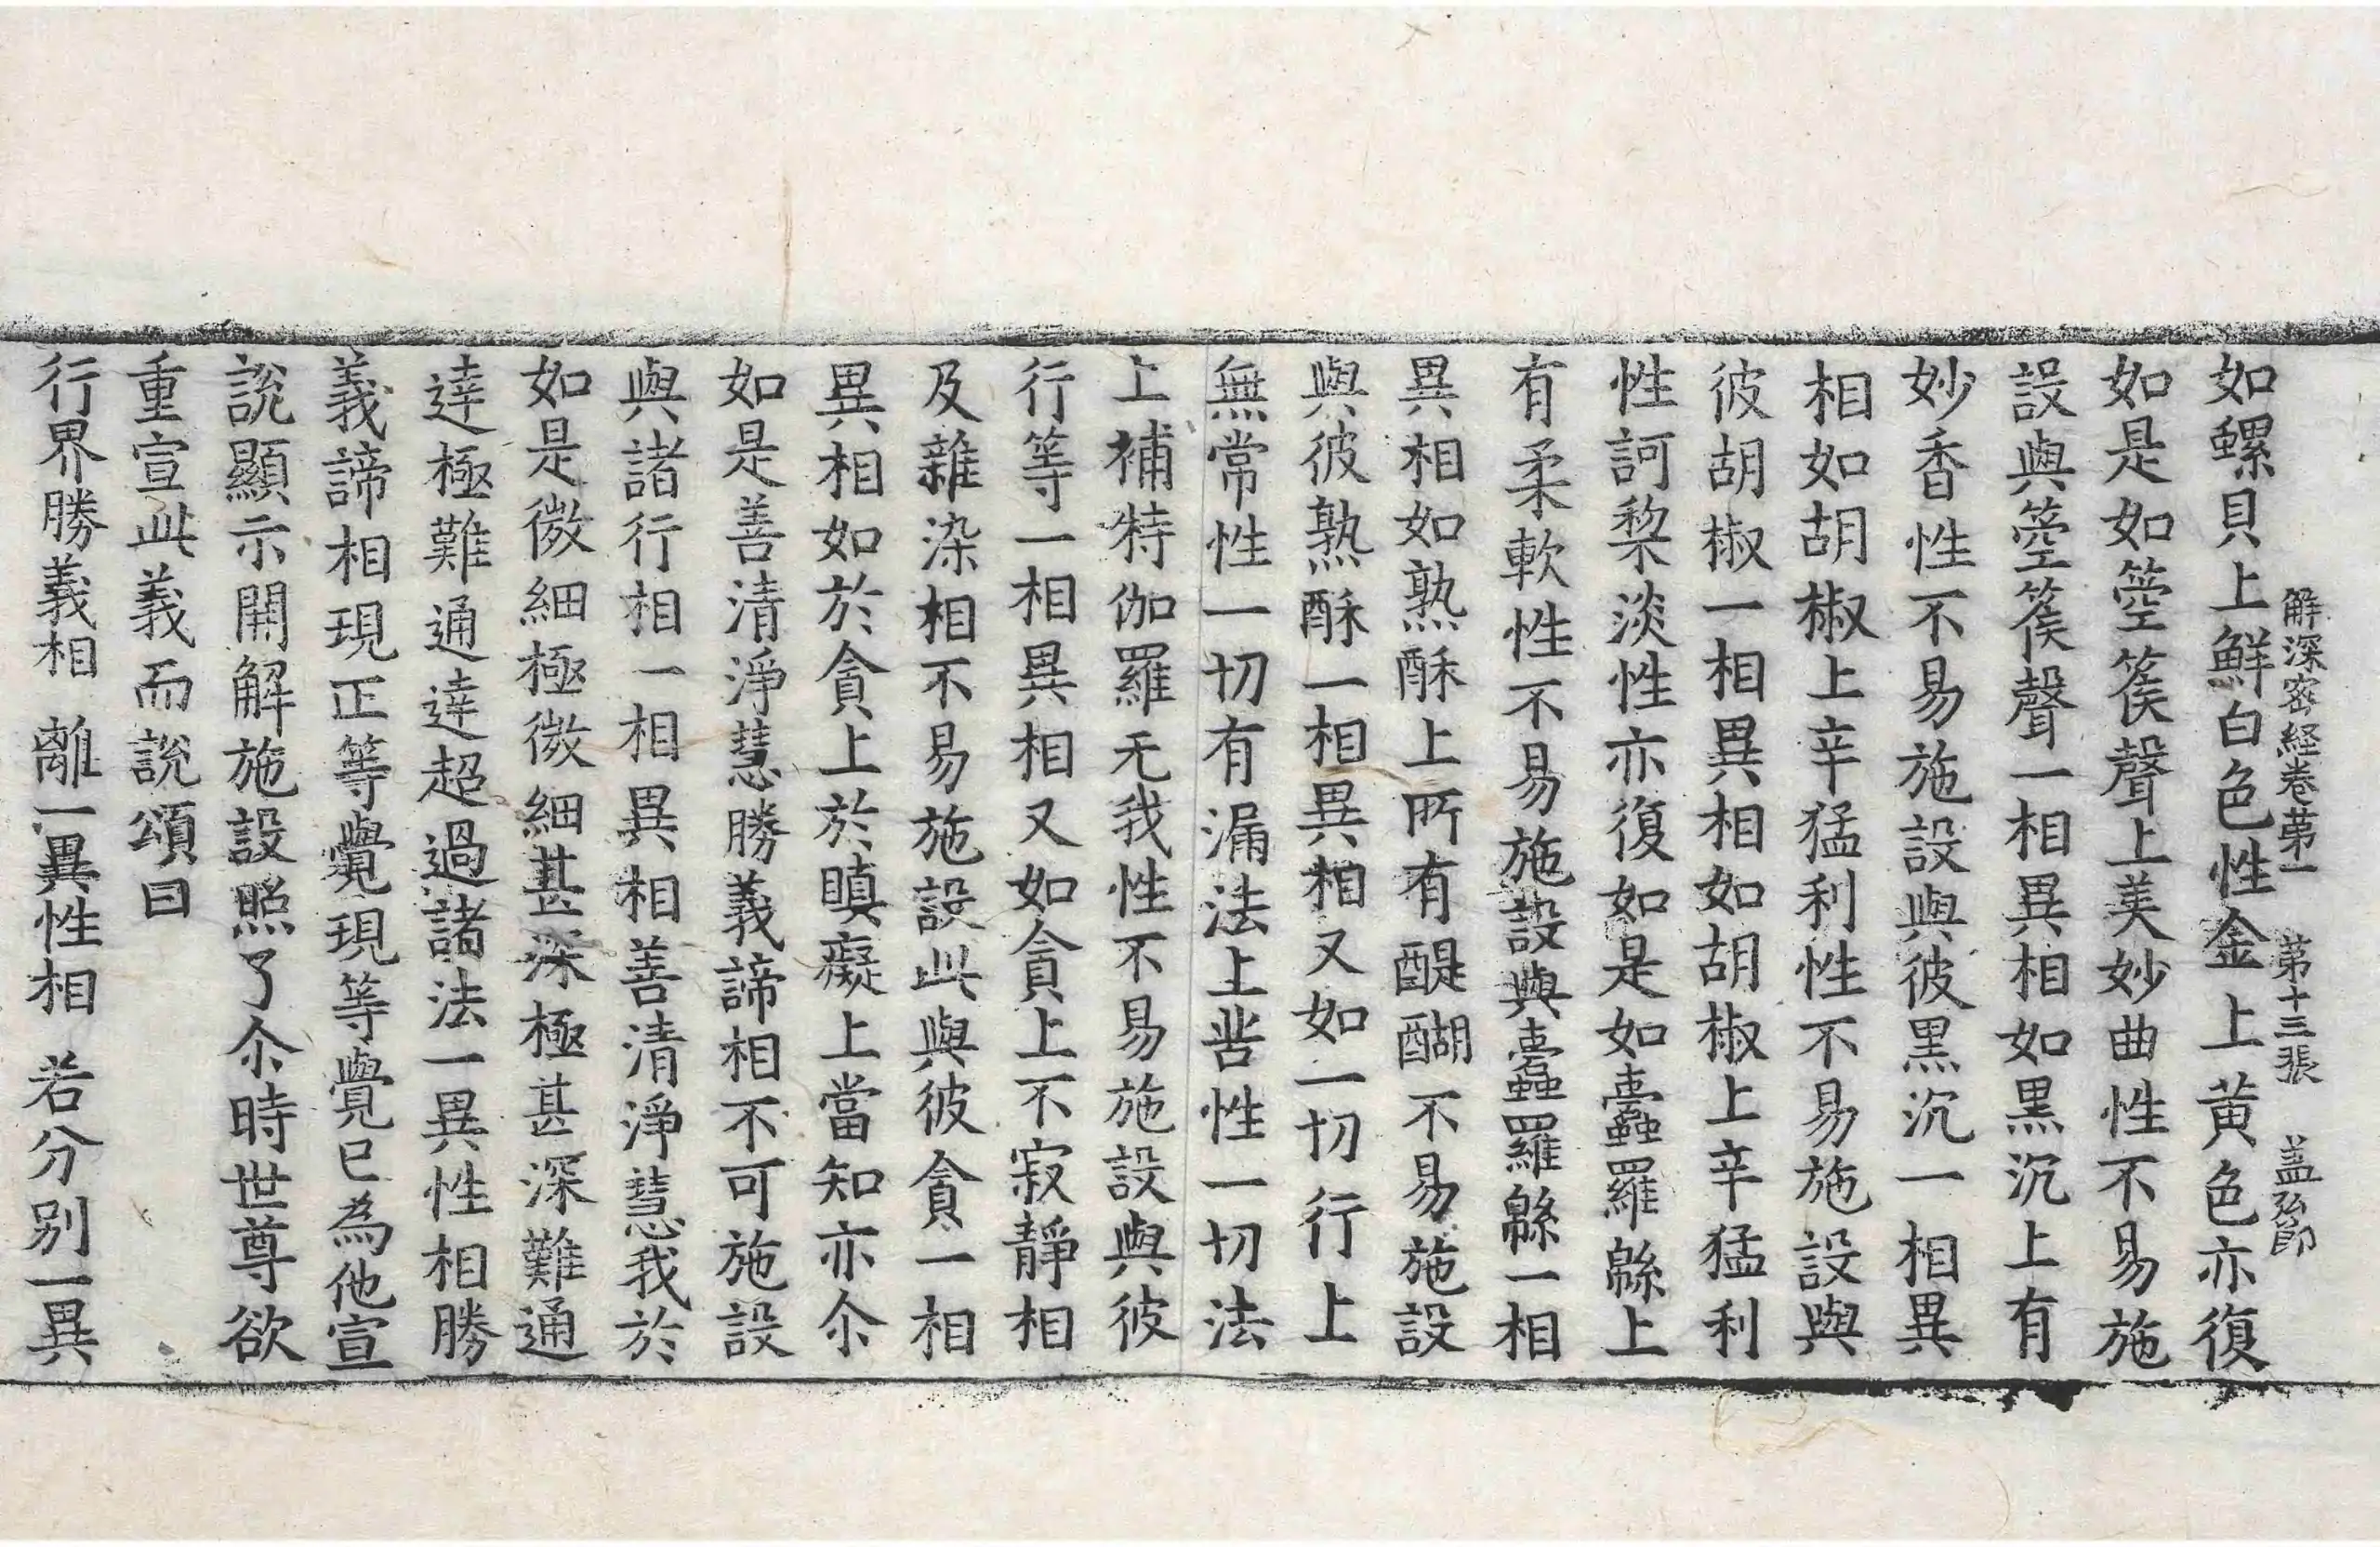 解深密経卷苐一 苐十三張 盖
如螺貝上鮮白色性金上黄色亦復
如是如箜篌聲上美妙曲性不易施
設與箜篌聲一相異相如黒沉上有
妙香性不易施設與彼黒沉一相異
相如胡椒上辛猛利性不易施設與
彼胡椒一相異相如胡椒上辛猛利
性訶梨淡性亦復如是如蠹羅緜上
有柔軟性不易施設與蠹羅緜一相
異相如熟酥上所有醍醐不易施設
與彼熟酥一相異相又如一切行上
無常性一切有漏法上苦性一切法
上補特伽羅无我性不易施設與彼
行等一相異相又如貪上不寂靜相
及雜染相不易施設此與彼貪一相
異相如於貪上於瞋癡上當知亦尒
如是善清淨慧勝義諦相不可施設
與諸行相一相異相善清淨慧我於
如是微細極微細甚深極甚深難通
達極難通達超過諸法一異性相勝
義諦相現正等覺現等覺已為他宣
說顯示開解施設照了尒時世尊欲
重宣此義而說頌曰
行界勝義相 離一異性相 若分別一異